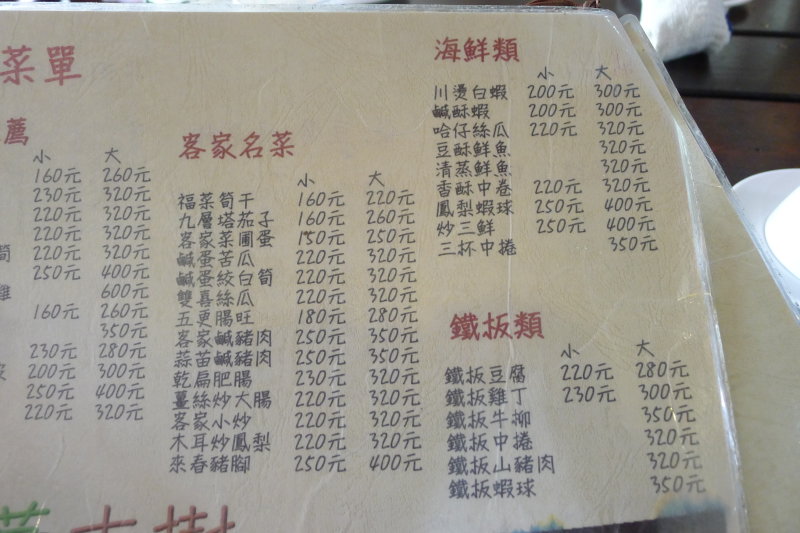 菜單
薦
小 大
160元 260元
230元 320元
220元 320元
220元 320元
筍 220元 320元
250元 400元
雞 600元
160元 260元
350元
230元 280元
200元 300元
250元 400元
220元 320元
客家名菜
小 大
福菜筍干 160元 220元
九層塔茄子 160元 260元
客家菜圃蛋 150元 250元
鹹蛋苦瓜 220元 320元
鹹蛋絞白筍 220元 320元
雙喜絲瓜 220元 320元
五更腸旺 180元 280元
客家鹹豬肉 250元 350元
蒜苗鹹豬肉 250元 350元
乾扁肥腸 230元 320元
薑絲炒大腸 220元 320元
客家小炒 220元 320元
木耳炒鳳梨 220元 320元
來春豬腳 250元 400元
海鮮類
小 大
川燙白蝦 200元 300元
鹹酥蝦 200元 300元
哈仔絲瓜 220元 320元
豆酥鮮魚 320元
清蒸鮮魚 320元
香酥中卷 220元 320元
鳳梨蝦球 250元 400元
炒三鮮 250元 400元
三杯中捲 350元
鐵板類
小 大
鐵板豆腐 220元 280元
鐵板雞丁 230元 300元
鐵板牛柳 350元
鐵板中捲 320元
鐵板山豬肉 320元
鐵板蝦球 350元